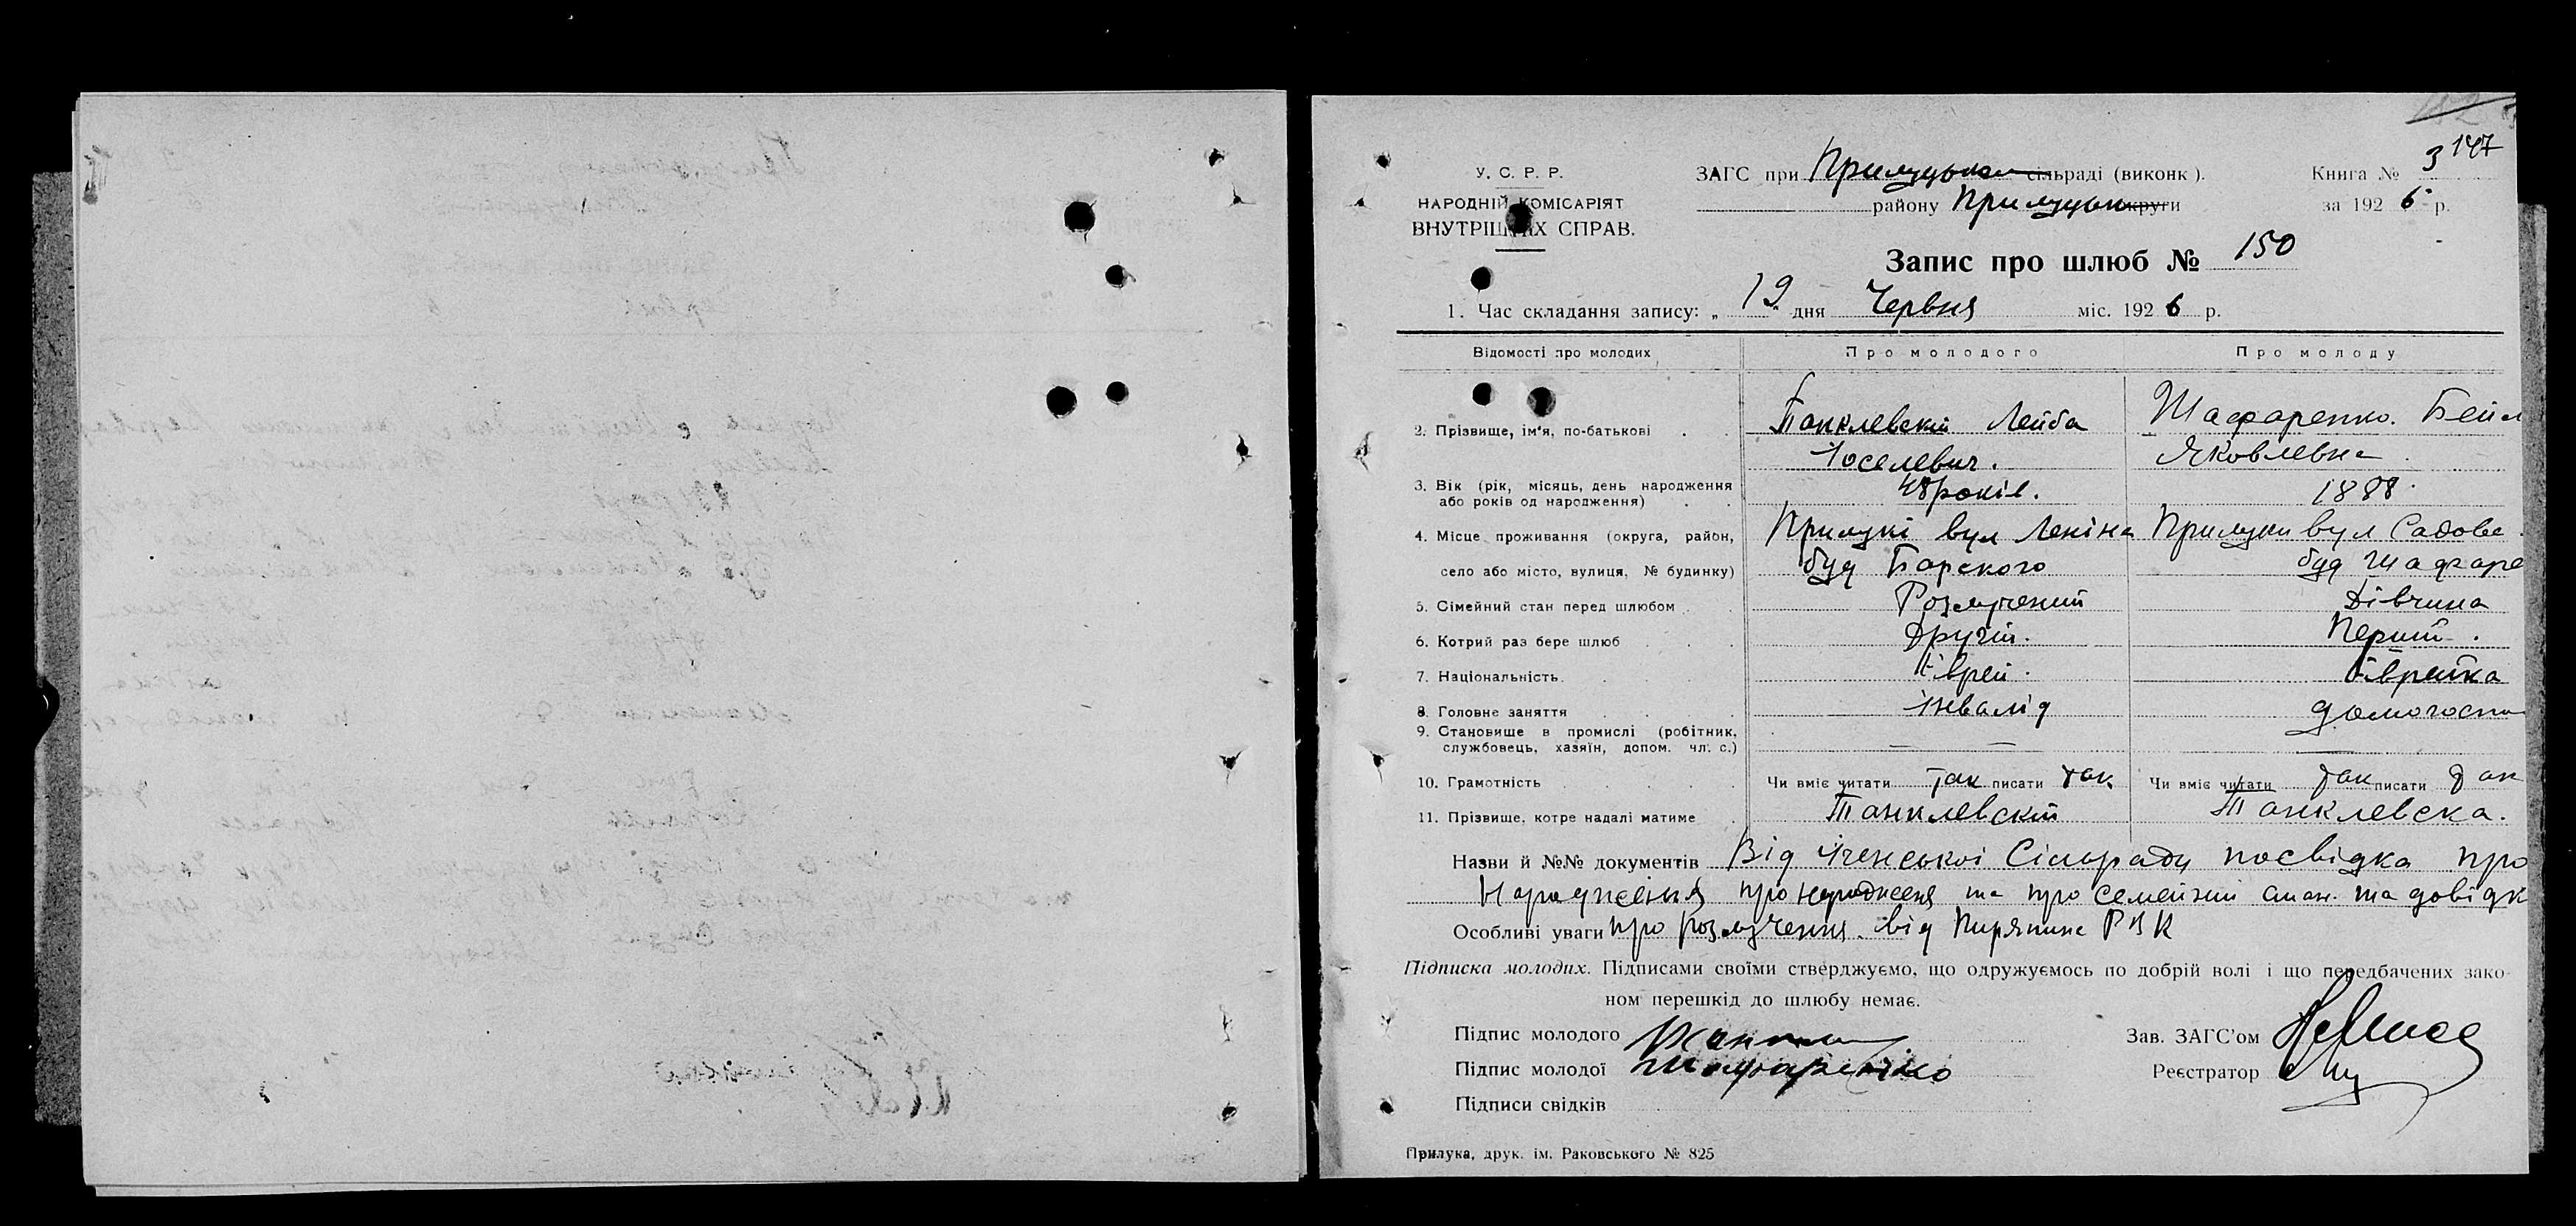 147
У. С. Р. Р.
НАРОДНІЙ КОМІСАРІЯТ
ВНУТРІШНІХ СПРАВ.
ЗАГС при Прилуцьком сільраді (виконк).
Книга № 3
району Прилуцьк округи
за 1926 р.
Запис про шлюб № 150
1. Час складання запису: „19" дня Червня міс. 1926 р.
Відомості про молодих
Про молодого
Про молоду
2. Прізвище, ім'я, по-батькові . .
Танклевский Лейба
Іоселевич.
Шафаренко. Бейл
Яковлевна
3. Вік (рік, місяць, день народження
або років од народження) . .
48 років.
1888
4. Місце проживання (округа, район,
село або місто, вулиця, № будинку)
Прилукі вул Леніна
буд Барского
Прилуки вул Садова
буд Шафаре
5. Сімейний стан перед шлюбом . .
Розлучений
Дівчина
6. Котрий раз бере шлюб . . .
Другий.
Перший.
7. Національність. . . .
Єврей.
Єврейка
8. Головне заняття . . . .
Інвалід
домогосп
9. Становище в промислі (робітник,
службовець, хазяїн, допом. чл. с.)
10. Грамотність . . . . .
Чи вміє читати так писати так
Чи вміє читати так писати так
11. Прізвище, котре надалі матиме .
Танклевский
Танклевска.
Назви й №№ документів Від Іченської Сільради посвідка про
Народження про народженя та про семейний стан. та довідк
Особливі уваги про розлучення від Пирятине РВК
Підписка молодих. Підписами своїми стверджуємо, що одружуємось по добрій волі і що передбачених зако-
ном перешкід до шлюбу немає.
Підпис молодого
Зав. ЗАГС'ом
Підпис молодої Шафаренко
Реєстратор
Підписи свідків
Прилука, друк. ім. Раковського № 825